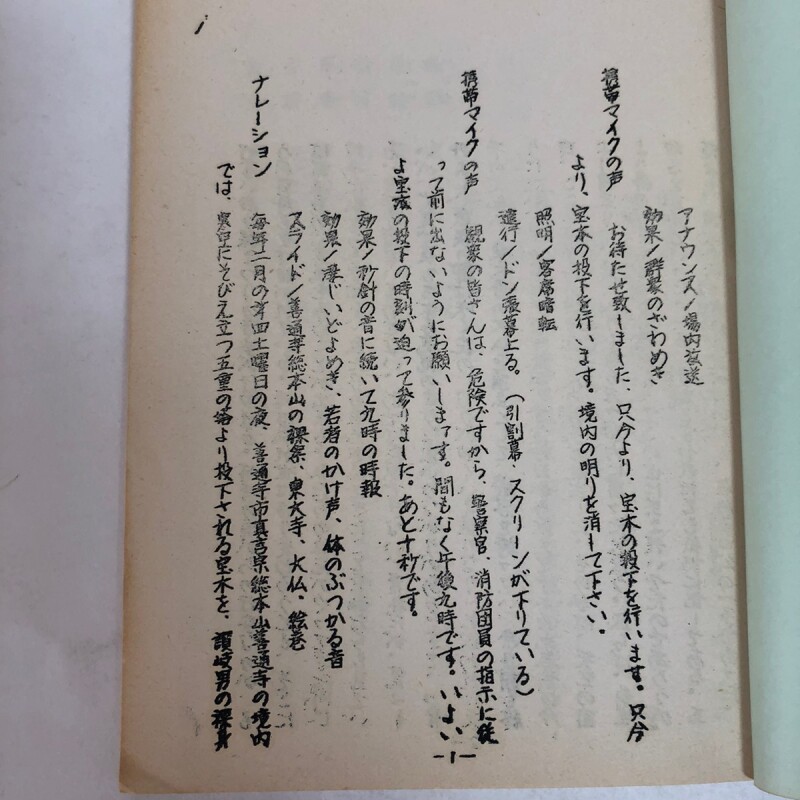 アナウンス/場内放送
効果/群衆のざわめき
携帯マイクの声 お待たせ致しました、只今より、宝木の投下を行います。只今
より、宝木の投下を行います。境内の明りを消して下さい。
照明/客席暗転
進行/ドン張幕上る。(引割幕、スクリーンが下りている)
携帯マイクの声 観衆の皆さんは、危険ですから、警察官、消防団員の指示に従
って前に出ないようにお願いしまアす。間もなく午後九時です。いよい
よ宝木の投下の時刻が迫って参りました。あと十秒です。
効果/秒針の音に続いて九時の時報
効果/凄じいどよめき、若者のかけ声、体のぶつかる音
スライド/善通寺総本山の裸祭、東大寺、大仏、絵巻
ナレーション 毎年二月の第四土曜日の夜、善通寺市真言宗総本山善通寺の境内
では、寒空にそびえ立つ五重の塔より投下される宝木を、讃岐男の裸身
-1-